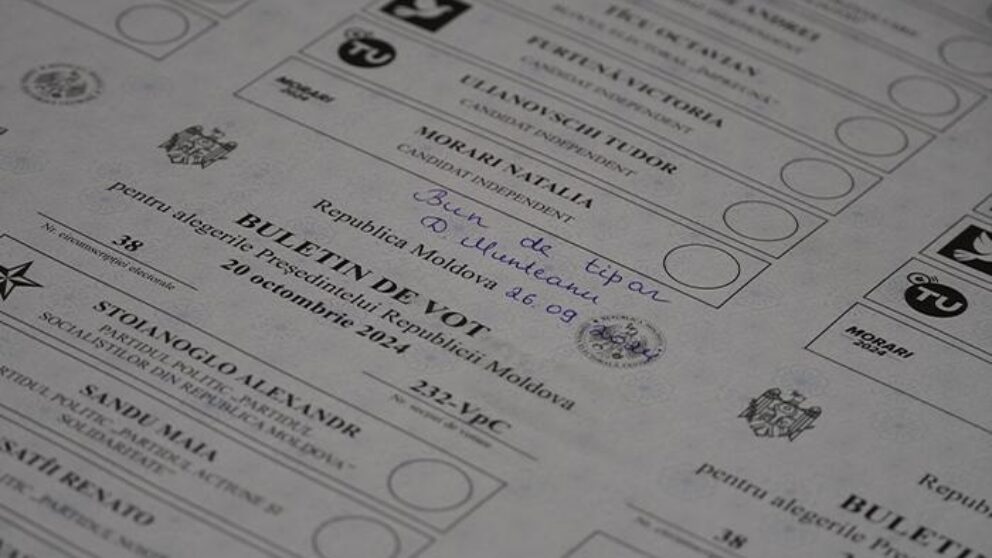 ȚÎCU OCTAVIAN
BLOCUL ELECTORAL „ÎMPREUNĂ”
FURTUNĂ VICTORIA
CANDIDAT INDEPENDENT
TU
ULIANOVSCHI TUDOR
CANDIDAT INDEPENDENT
MORARI
2024
MORARI NATALIA
CANDIDAT INDEPENDENT
Bun de tipar
D Munteanu
26.09 2024
Republica Moldova
BULETIN DE VOT
pentru alegerile Președintelui Republicii Moldova
20 octombrie 2024
38
Nr. circumscripției electorale
232-VpC
Nr. secției de votare
STOIANOGLO ALEXANDR
PARTIDUL POLITIC „PARTIDUL
SOCIALIȘTILOR DIN REPUBLICA MOLDOVA”
SANDU MAIA
PARTIDUL POLITIC „PARTIDUL ACȚIUNE ȘI
SOLIDARITATE”
USATÎI RENATO
TU
MORARI
2024
BULETI
pentru alegerile Pre
38